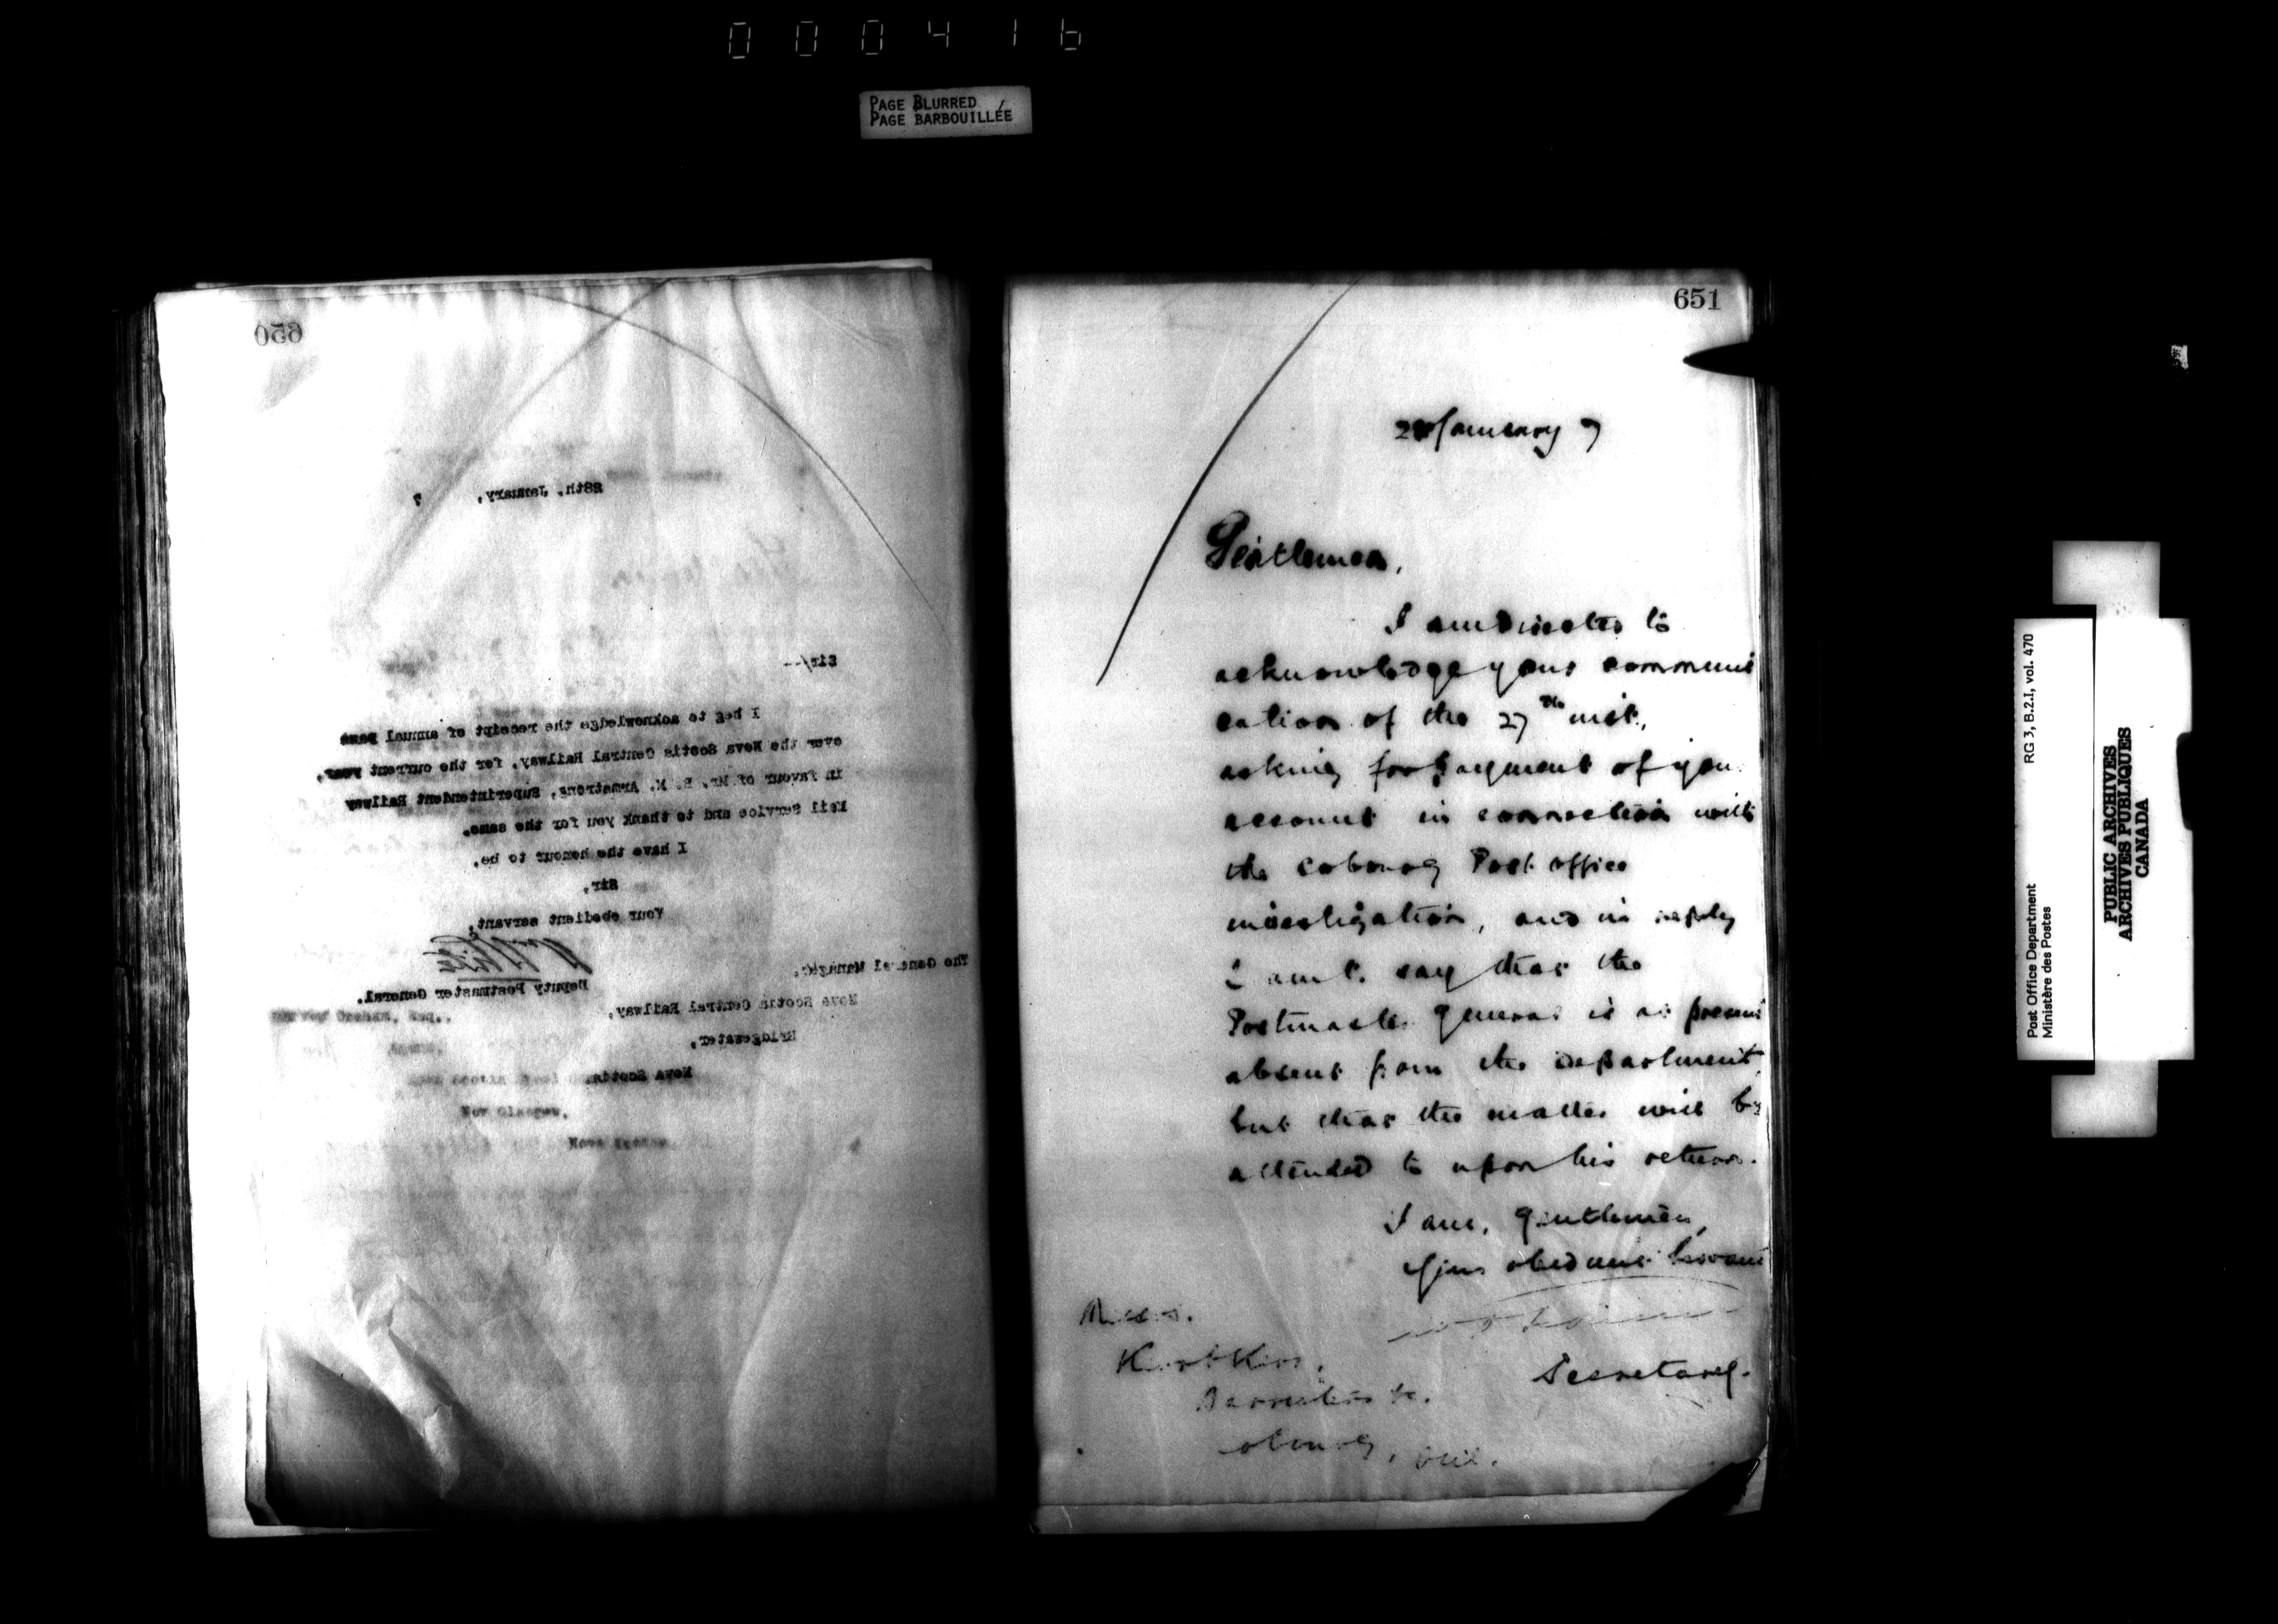 000416
PAGE BLURRED
PAGE BARBOUILLÉE
650
28th. January, 7
Sir/--
I beg to acknowledge the receipt of annual pass
over the Nova Scotia Central Railway, for the current year,
in favour of Mr. B. M. Armstrong, Superintendent Railway
Mail Service and to thank you for the same.
I have the honour to be,
Sir,
Your obedient servant,
W White
Deputy Postmaster General.
The General Manager,
Nova Scotia Central Railway,
Bridgewater,
Nova Scotia.
Graham, Esq.,
New Glasgow,
Nova Scotia
651
January 7
Gentlemen,
I am directed to
acknowledge your communi
cation of the 27th inst.,
asking for payment of your
account in connection with
the Cobourg Post office
investigation, and in reply
I am to say that the
Postmaster General is at present
absent from the department,
but that the matter will be
attended to upon his return.
I am, Gentlemen,
Your obedient Servant
Secretary.
Messrs.
Kerr & Kerr,
Barristers &c.
Cobourg, Ont.
Post Office Department RG 3, B.2.I, vol. 470
Ministère des Postes
PUBLIC ARCHIVES
ARCHIVES PUBLIQUES
CANADA